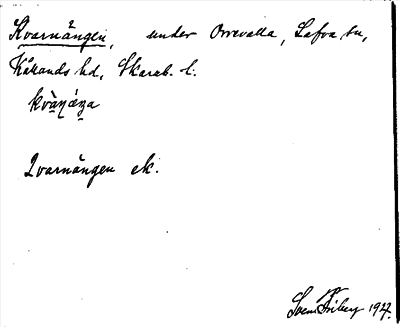 Kvarnängen, under Orrevalla, Lafva sn,
Kåkands hd, Skarab. l.
Qvarnängen ek.
Sven Friberg 1927.